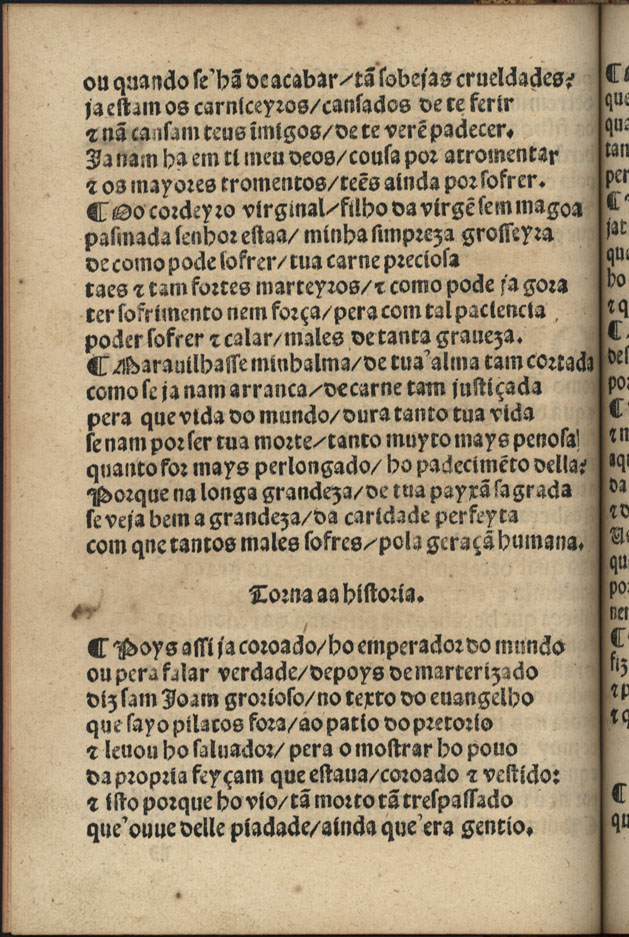 ou quando se'hã de acabar/tã sobejas crueldades?
ja estam os carniceyros/cansados de te ferir
⁊ nã cansam teus ĩmigos/de te verẽ padecer.
Ja nam ha em ti meu deos/cousa por atromentar
⁊ os mayores tromentos/teẽs ainda por sofrer.
¶ Oo cordeyro virginal/filho da virgẽ sem magoa
pasmada senhor estaa/ minha simpreza grosseyra
de como pode sofrer/tua carne preciosa
taes ⁊ tam fortes marteyros/⁊ como pode ja gora
ter sofrimento nem força/pera com tal paciencia
poder sofrer ⁊ calar/males de tanta graueza.
¶ Marauilhasse minhalma/de tua'alma tam cortada
como se ja nam arranca/de carne tam justiçada
pera que vida do mundo/dura tanto tua vida
se nam por ser tua morte/tanto muyto mays penosa
quanto for mays perlongado/ ho padecimẽto della?
Porque na longa grandeza/de tua payxã sagrada
se veja bem a grandeza/da caridade perfeyta
com que tantos males sofres/pola geraçã humana.
Torna aa historia.
¶ Poys assi ja coroado/ho emperador do mundo
ou pera falar verdade/depoys de marterizado
diz sam Joam grorioso/no texto do euangelho
que sayo pilatos fora/ao patio do pretorio
⁊ leuou ho saluador/ pera o mostrar ho pouo
da propria feyçam que estaua/coroado ⁊ vestido:
⁊ isto porque ho vio/tã morto tã trespassado
que'ouue delle piadade/ainda que'era gentio.